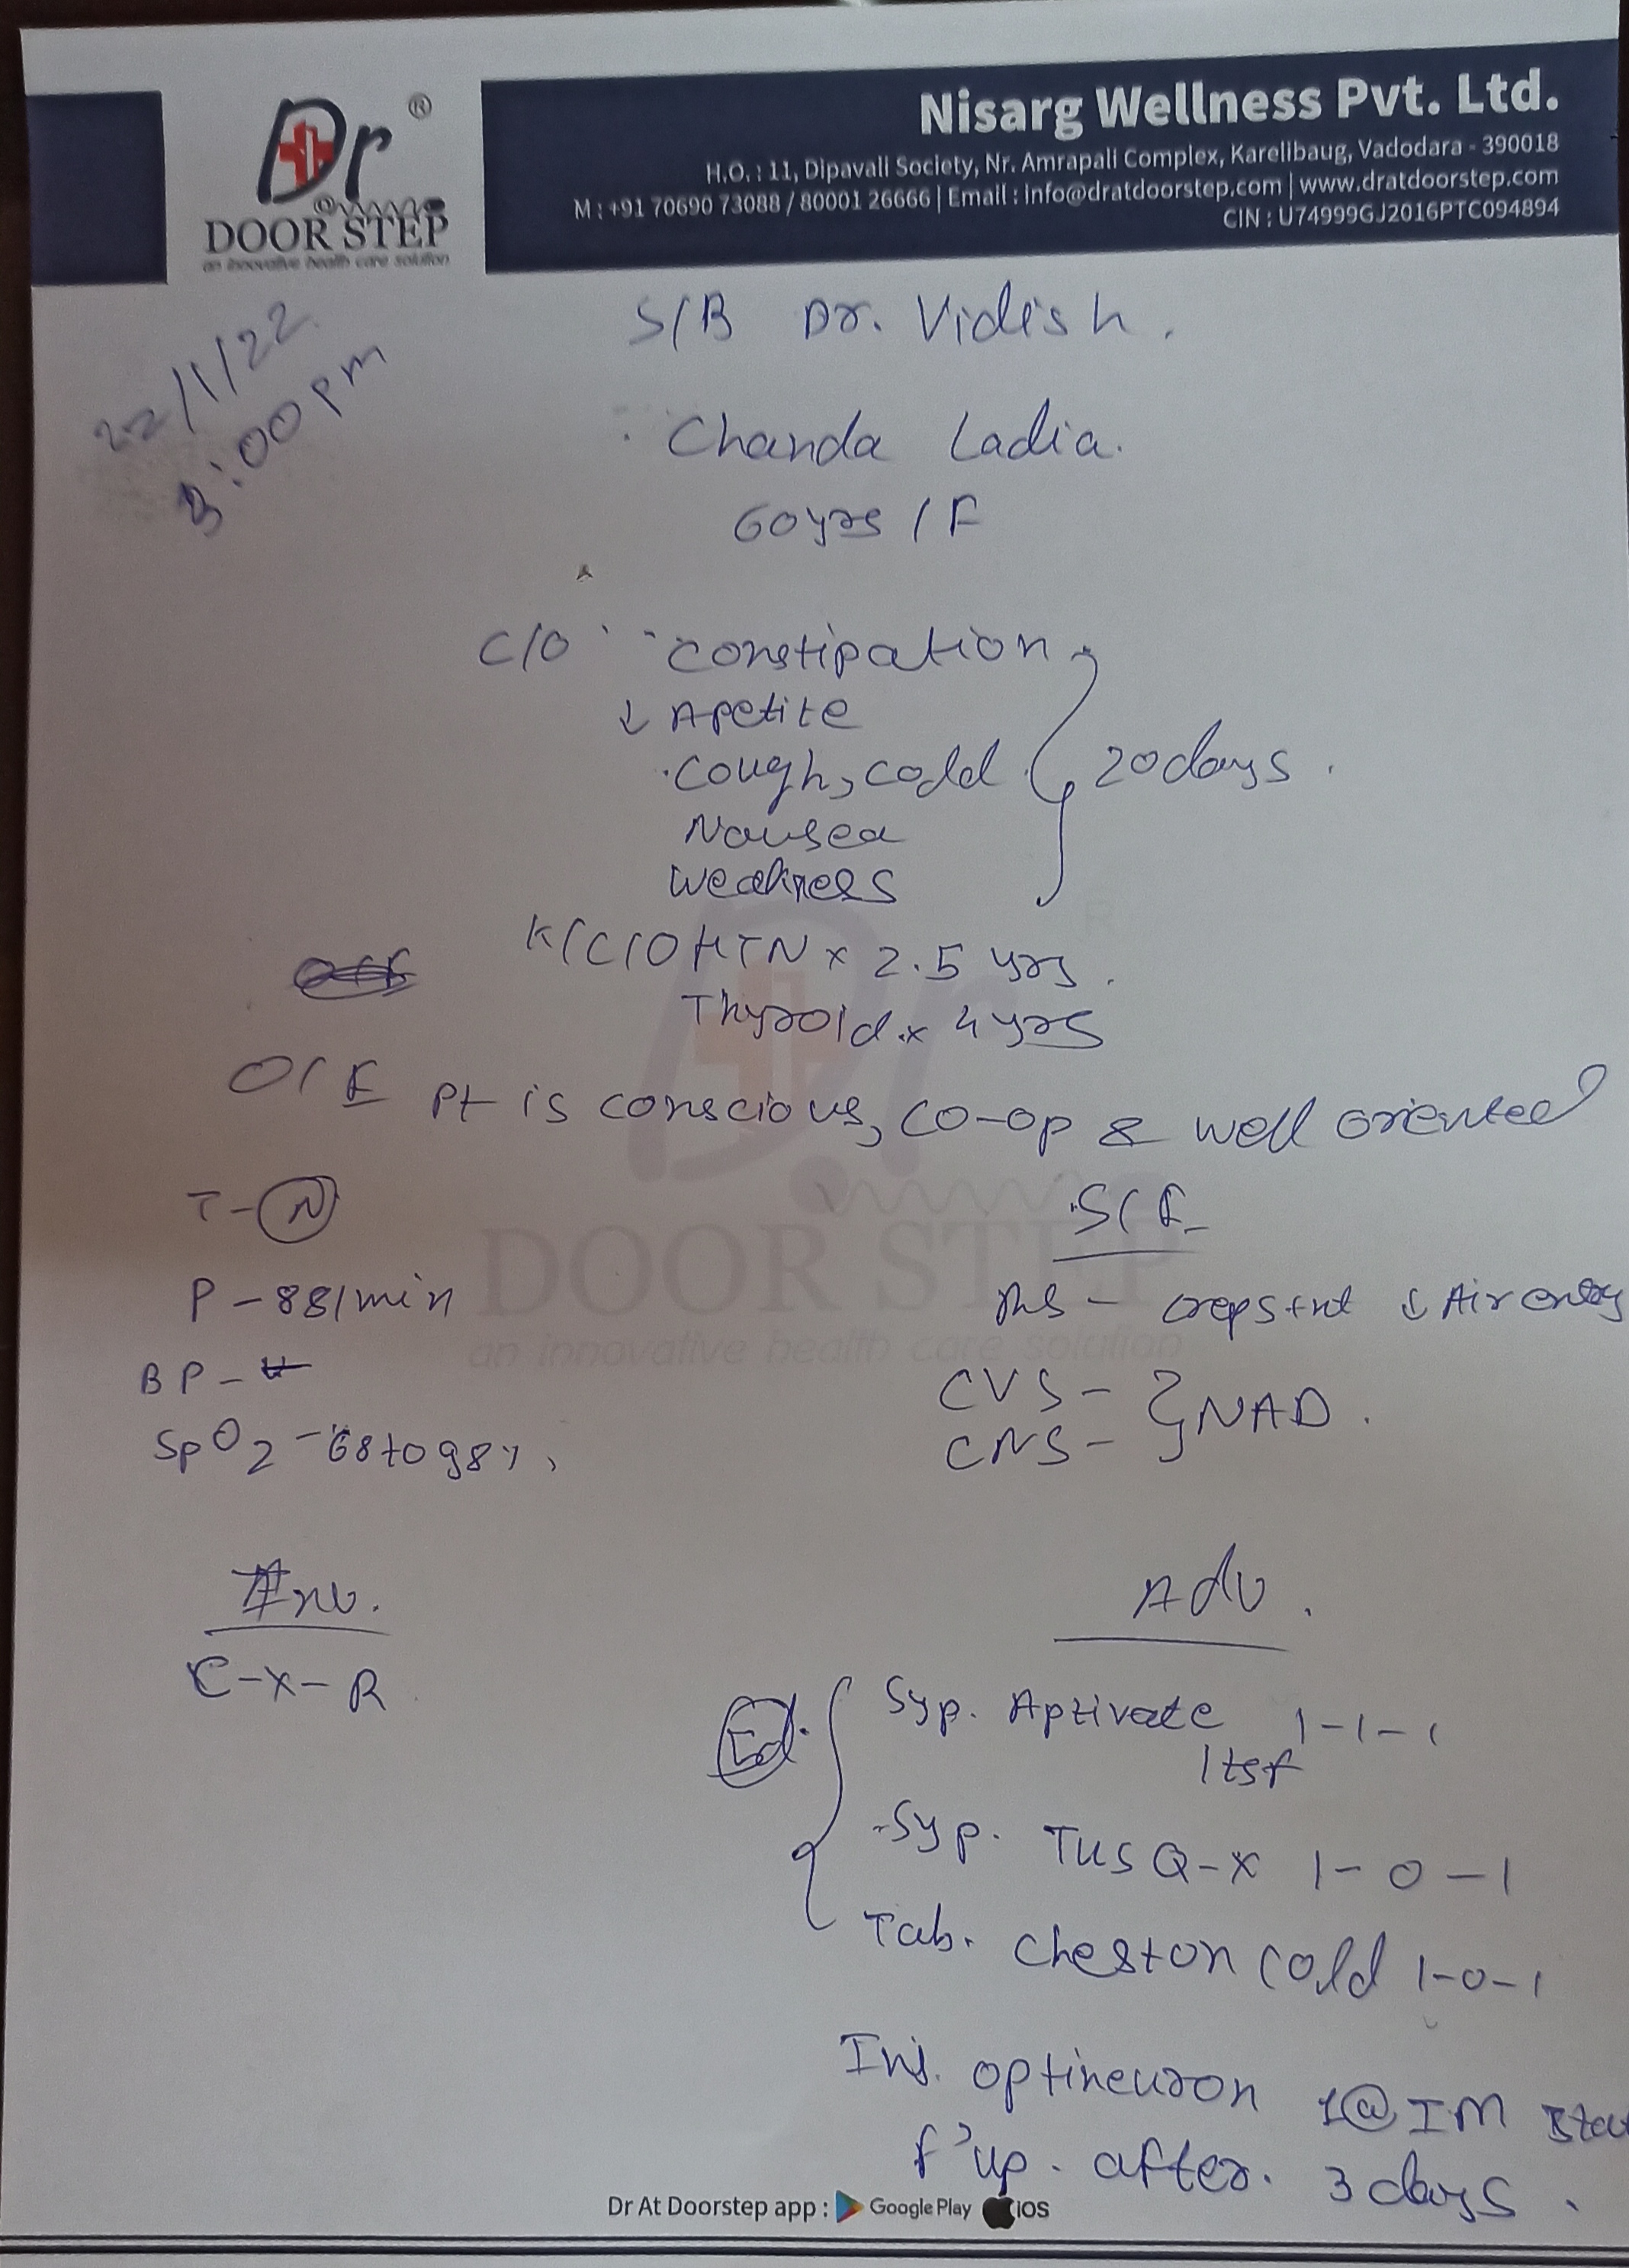 Dr ®
DOOR STEP
an innovative health care solution
Nisarg Wellness Pvt. Ltd.
H.O. : 11, Dipavali Society, Nr. Amrapali Complex, Karelibaug, Vadodara - 390018
M : +91 70690 73088 / 80001 26666 | Email : info@dratdoorstep.com | www.dratdoorstep.com
CIN : U74999GJ2016PTC094894
22/1/22
:00 pm
S/B Dr. Vidish.
Chanda Ladia.
60yrs / F
C/O constipation
↓ Apetite
cough, cold 20 days.
Nausea
Weakness
K/C/O HTN x 2.5 yrs.
Thyroid x 4 yrs
O/E Pt is conscious, co-op & well oriented
T - N
S/E
P - 88/min
RS - creps +nt ↓ Air entry
BP -
CVS -
CNS - } NAD.
SpO2 - to 98%
Inv.
Adv.
C-X-R
Syp. Aptivate 1-1-1
1 tsf
Syp. TUSQ-X 1-0-1
Tab. Cheston cold 1-0-1
Inj. optineuron 1@ IM
f'up. after. 3 days.
DOOR STEP
an innovative health care solution
Dr At Doorstep app : Google Play iOS